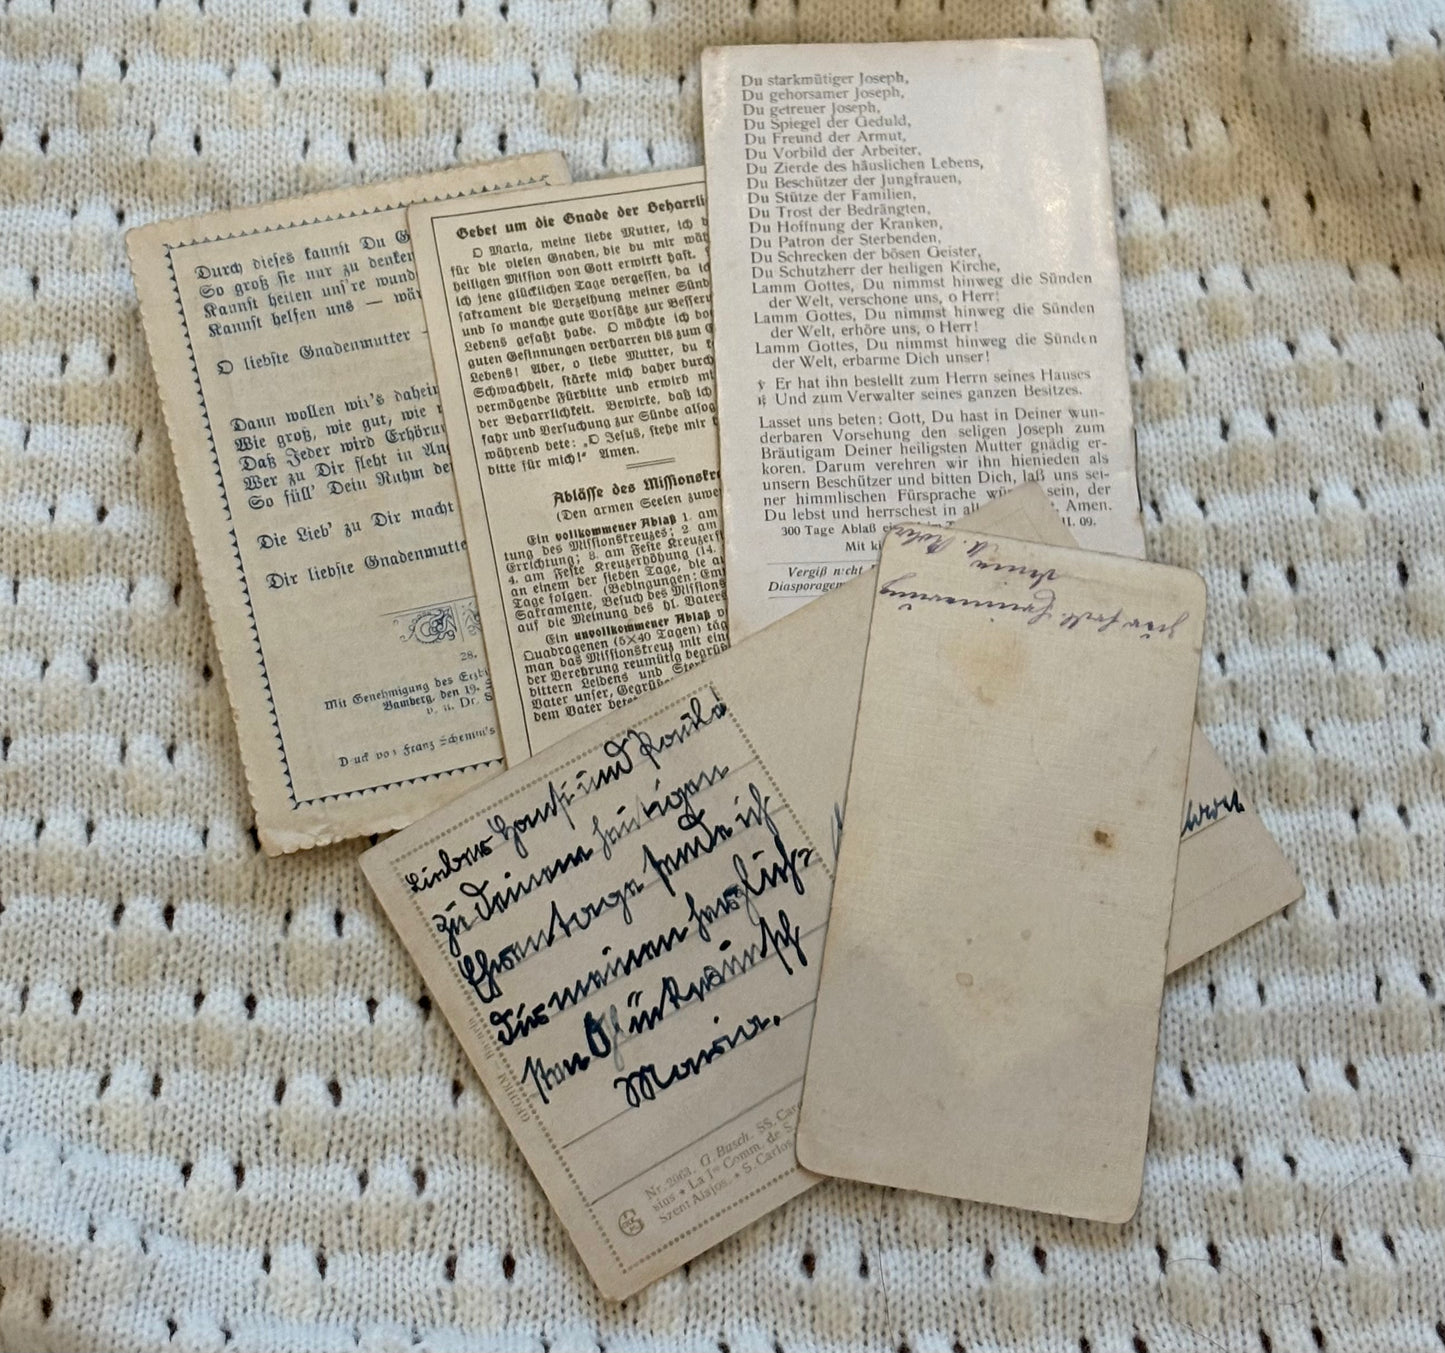 Durch dieses kannst Du G
So groß sie nur zu denken
Kannst heilen uns're wund
Kannst helfen uns — wär
O liebste Gnadenmutter —
Dann wollen wir's daheim
Wie groß, wie gut, wie
Daß Jeder wird Erhörun
Wer zu Dir fleht in An
So füll' Dein Ruhm de
Die Lieb' zu Dir macht
Dir liebste Gnadenmutte
28.
Mit Genehmigung des Erzbi
Bamberg, den 19.
Druck von Franz Schemm's
Gebet um die Gnade der Beharrli
O Maria, meine liebe Mutter, ich d
für die vielen Gnaden, die du mir wäh
heiligen Mission von Gott erwirkt hast.
ich jene glücklichen Tage vergessen, da ich
sakrament die Verzeihung meiner Sünd
und so manche gute Vorsätze zur Besseru
Lebens gefaßt habe. O möchte ich do
guten Gesinnungen verharren bis zum
Lebens! Aber, o liebe Mutter, du
Schwachheit, stärke mich daher durch
vermögende Fürbitte und erwirb mi
der Beharrlichkeit. Bewirke, daß ich
fahr und Versuchung zur Sünde alsog
während bete: „O Jesus, stehe mir
bitte für mich!“ Amen.
Ablässe des Missionskre
(Den armen Seelen zuwe
Ein vollkommener Ablaß 1. am
tung des Missionskreuzes; 2. am
Errichtung; 3. am Feste Kreuzerf
4. am Feste Kreuzerhöhung (14.
an einem der sieben Tage, die a
Tage folgen. (Bedingungen: Em
Sakramente, Besuch des Missions
auf die Meinung des hl. Vaters
Ein unvollkommener Ablaß v
Quadragenen (5×40 Tagen) täg
man das Missionskreuz mit eine
der Verehrung reumütig begrüß
bittern Leidens und Ster
Vater unser, Gegrüß
dem Vater bete
Du starkmütiger Joseph,
Du gehorsamer Joseph,
Du getreuer Joseph,
Du Spiegel der Geduld,
Du Freund der Armut,
Du Vorbild der Arbeiter,
Du Zierde des häuslichen Lebens,
Du Beschützer der Jungfrauen,
Du Stütze der Familien,
Du Trost der Bedrängten,
Du Hoffnung der Kranken,
Du Patron der Sterbenden,
Du Schrecken der bösen Geister,
Du Schutzherr der heiligen Kirche,
Lamm Gottes, Du nimmst hinweg die Sünden
der Welt, verschone uns, o Herr!
Lamm Gottes, Du nimmst hinweg die Sünden
der Welt, erhöre uns, o Herr!
Lamm Gottes, Du nimmst hinweg die Sünden
der Welt, erbarme Dich unser!
℣ Er hat ihn bestellt zum Herrn seines Hauses
℟ Und zum Verwalter seines ganzen Besitzes.
Lasset uns beten: Gott, Du hast in Deiner wun-
derbaren Vorsehung den seligen Joseph zum
Bräutigam Deiner heiligsten Mutter gnädig er-
koren. Darum verehren wir ihn hienieden als
unsern Beschützer und bitten Dich, laß uns sei-
ner himmlischen Fürsprache wür sein, der
Du lebst und herrschest in all Amen.
300 Tage Ablaß ei II. 09.
Mit ki
Vergiß nicht
Diasporagem
Liebes Hansi und Paula
zu Deinem heutigen
Ehrentage sende ich
Dir meinen herzlich=
sten Glückwunsch
Maria.
Nr. 206a. G. Busch. SS. Car
sius • La 1re Comm. de S.
Szent Alajos. • S. Carlos
Zur frdl. Erinnerung